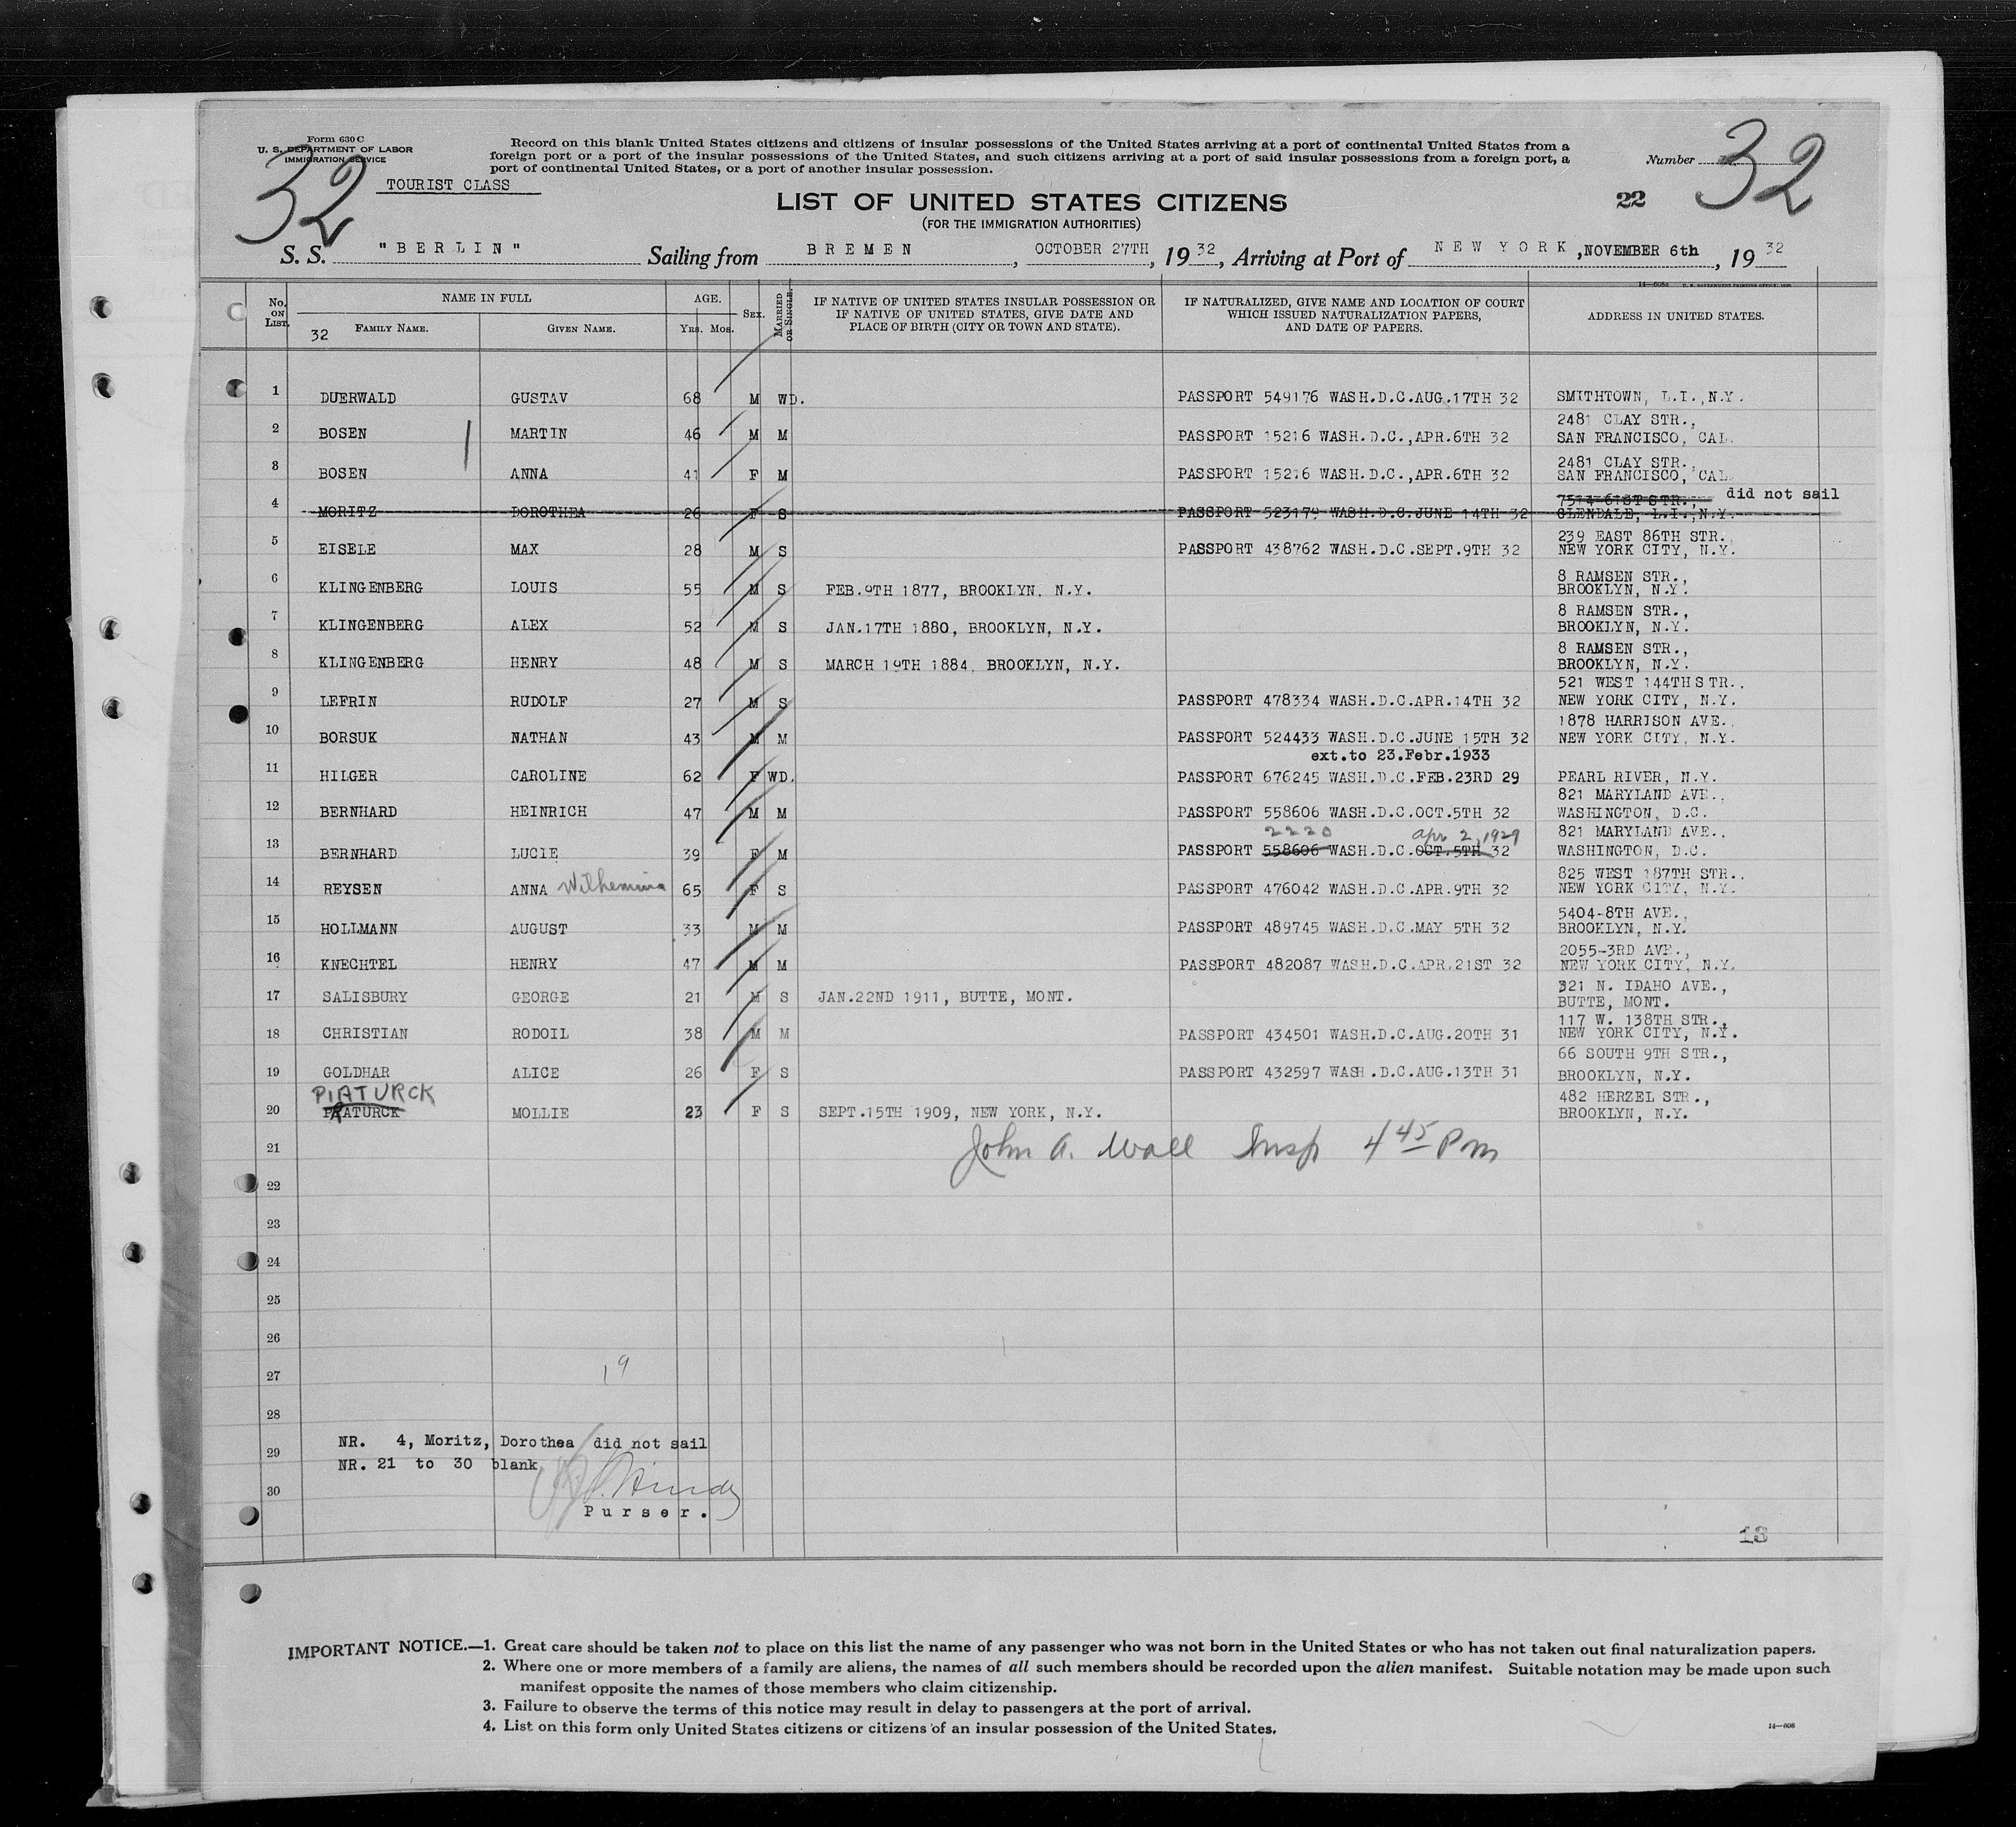 Form 630 C
U. S. DEPARTMENT OF LABOR
IMMIGRATION SERVICE
32
TOURIST CLASS
Record on this blank United States citizens and citizens of insular possessions of the United States arriving at a port of continental United States from a
foreign port or a port of the insular possessions of the United States, and such citizens arriving at a port of said insular possessions from a foreign port, a
port of continental United States, or a port of another insular possession.
Number 32
LIST OF UNITED STATES CITIZENS
22
(FOR THE IMMIGRATION AUTHORITIES)
S. S. "BERLIN" Sailing from BREMEN, OCTOBER 27TH, 1932, Arriving at Port of NEW YORK, NOVEMBER 6th, 1932
No. ON LIST. NAME IN FULL AGE. SEX. MARRIED OR SINGLE. IF NATIVE OF UNITED STATES INSULAR POSSESSION OR IF NATIVE OF UNITED STATES, GIVE DATE AND PLACE OF BIRTH (CITY OR TOWN AND STATE). IF NATURALIZED, GIVE NAME AND LOCATION OF COURT WHICH ISSUED NATURALIZATION PAPERS, AND DATE OF PAPERS. ADDRESS IN UNITED STATES.
32 FAMILY NAME. GIVEN NAME. YRS. MOS.
1 DUERWALD GUSTAV 68 M WD. PASSPORT 549176 WASH.D.C.AUG.17TH 32 SMITHTOWN, L.I.,N.Y.
2 BOSEN MARTIN 46 M M PASSPORT 15216 WASH.D.C.,APR.6TH 32 2481 CLAY STR., SAN FRANCISCO, CAL.
3 BOSEN ANNA 41 F M PASSPORT 15216 WASH.D.C.,APR.6TH 32 2481 CLAY STR., SAN FRANCISCO, CAL.
4 MORITZ DOROTHEA 26 F S PASSPORT 523179 WASH.D.C.JUNE 14TH 32 7514-61ST STR., GLENDALE, L.I.,N.Y. did not sail
5 EISELE MAX 28 M S PASSPORT 438762 WASH.D.C.SEPT.9TH 32 239 EAST 86TH STR. NEW YORK CITY, N.Y.
6 KLINGENBERG LOUIS 55 M S FEB.9TH 1877, BROOKLYN, N.Y. 8 RAMSEN STR., BROOKLYN, N.Y.
7 KLINGENBERG ALEX 52 M S JAN.17TH 1880, BROOKLYN, N.Y. 8 RAMSEN STR., BROOKLYN, N.Y.
8 KLINGENBERG HENRY 48 M S MARCH 19TH 1884, BROOKLYN, N.Y. 8 RAMSEN STR., BROOKLYN, N.Y.
9 LEFRIN RUDOLF 27 M S PASSPORT 478334 WASH.D.C.APR.14TH 32 521 WEST 144TH STR., NEW YORK CITY, N.Y.
10 BORSUK NATHAN 43 M M PASSPORT 524433 WASH.D.C.JUNE 15TH 32 1878 HARRISON AVE., NEW YORK CITY, N.Y.
ext.to 23.Febr.1933
11 HILGER CAROLINE 62 F WD. PASSPORT 676245 WASH.D.C.FEB.23RD 29 PEARL RIVER, N.Y.
12 BERNHARD HEINRICH 47 M M PASSPORT 558606 WASH.D.C.OCT.5TH 32 821 MARYLAND AVE., WASHINGTON, D.C.
2220 Apr 2, 1929
13 BERNHARD LUCIE 39 F M PASSPORT 558606 WASH.D.C.OCT.5TH 32 821 MARYLAND AVE., WASHINGTON, D.C.
14 REYSEN ANNA Wilhemina 65 F S PASSPORT 476042 WASH.D.C.APR.9TH 32 825 WEST 187TH STR., NEW YORK CITY, N.Y.
15 HOLLMANN AUGUST 33 M M PASSPORT 489745 WASH.D.C.MAY 5TH 32 5404-8TH AVE., BROOKLYN, N.Y.
16 KNECHTEL HENRY 47 M M PASSPORT 482087 WASH.D.C.APR.21ST 32 2055-3RD AVE., NEW YORK CITY, N.Y.
17 SALISBURY GEORGE 21 M S JAN.22ND 1911, BUTTE, MONT. 321 N. IDAHO AVE., BUTTE, MONT.
18 CHRISTIAN RODOIL 38 M M PASSPORT 434501 WASH.D.C.AUG.20TH 31 117 W. 138TH STR., NEW YORK CITY, N.Y.
19 GOLDHAR ALICE 26 F S PASSPORT 432597 WASH.D.C.AUG.13TH 31 66 SOUTH 9TH STR., BROOKLYN, N.Y.
PIATURCK
20 PRATURCK MOLLIE 23 F S SEPT.15TH 1909, NEW YORK, N.Y. 482 HERZEL STR., BROOKLYN, N.Y.
21 John A. Wall Insp 4 45 Pm
22
23
24
25
26
27 19
28
NR. 4, Moritz, Dorothea did not sail
29
NR. 21 to 30 blank
30
Purser.
13
IMPORTANT NOTICE.—1. Great care should be taken not to place on this list the name of any passenger who was not born in the United States or who has not taken out final naturalization papers.
2. Where one or more members of a family are aliens, the names of all such members should be recorded upon the alien manifest. Suitable notation may be made upon such
manifest opposite the names of those members who claim citizenship.
3. Failure to observe the terms of this notice may result in delay to passengers at the port of arrival.
4. List on this form only United States citizens or citizens of an insular possession of the United States.
14—606